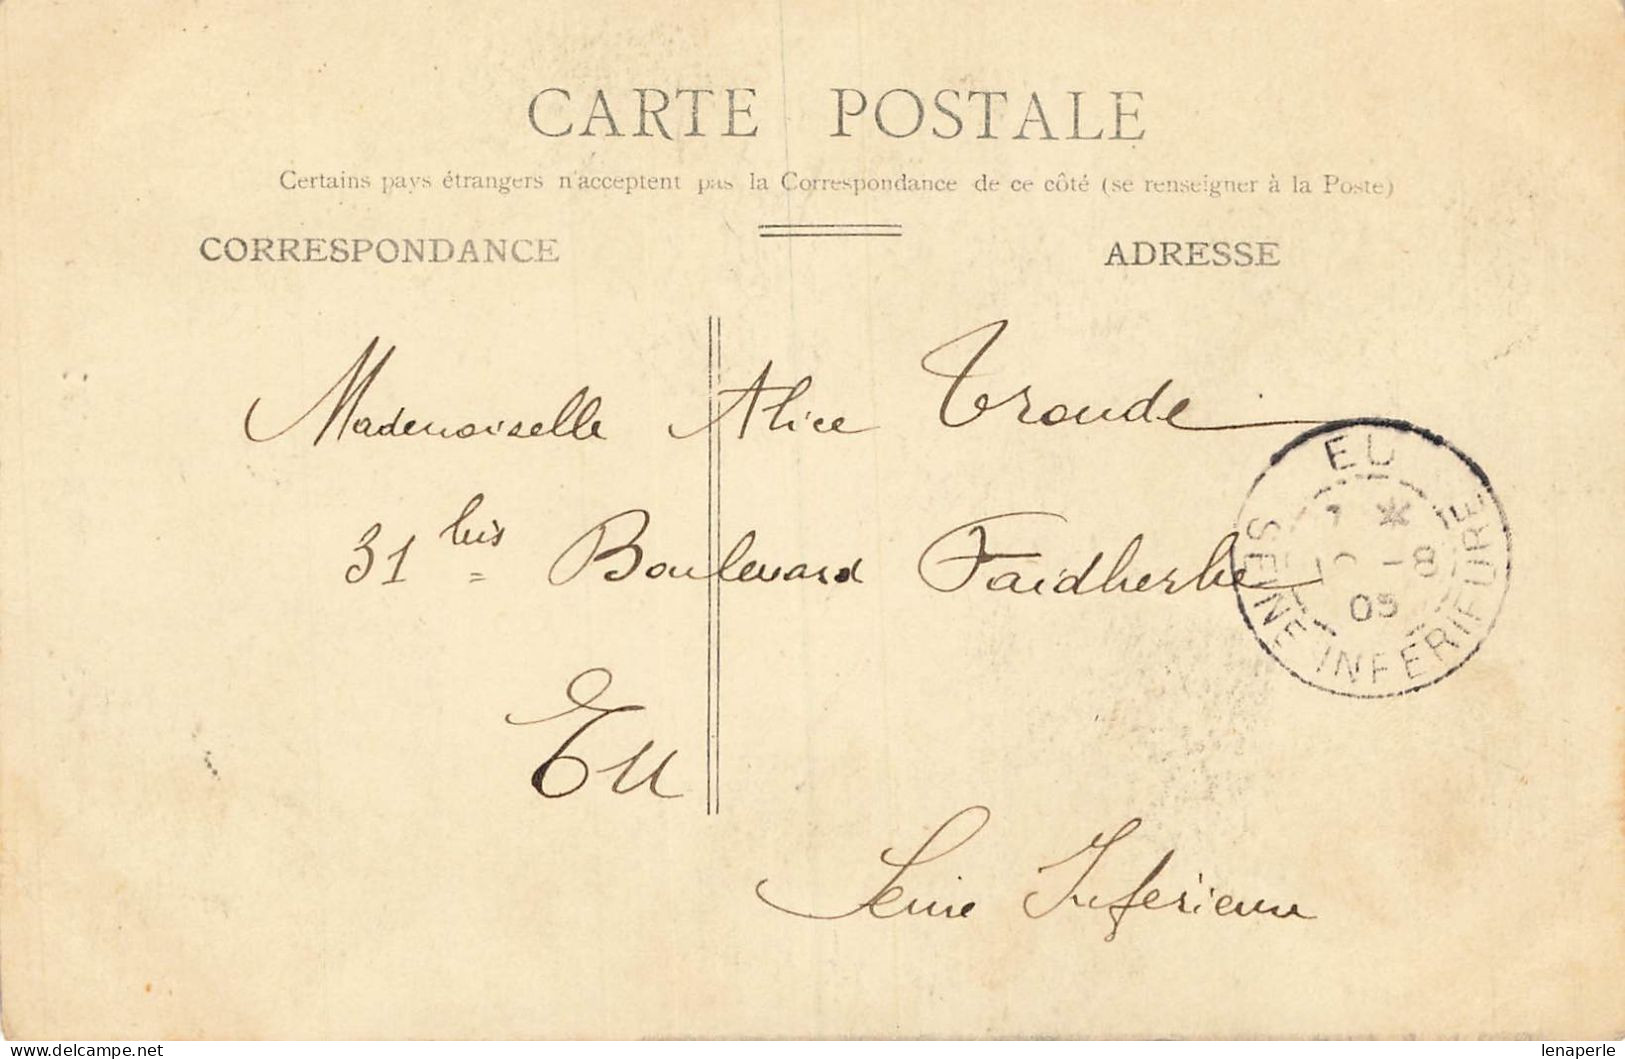 CARTE POSTALE
Certains pays étrangers n'acceptent pas la Correspondance de ce côté (se renseigner à la Poste)
CORRESPONDANCE
ADRESSE
Mademoiselle Alice Troude
31 bis Boulevard Faidherbe
Eu
Seine Inférieure
EU
-8
05
SEINE INFERIEURE
delcampe.net
lenaperle